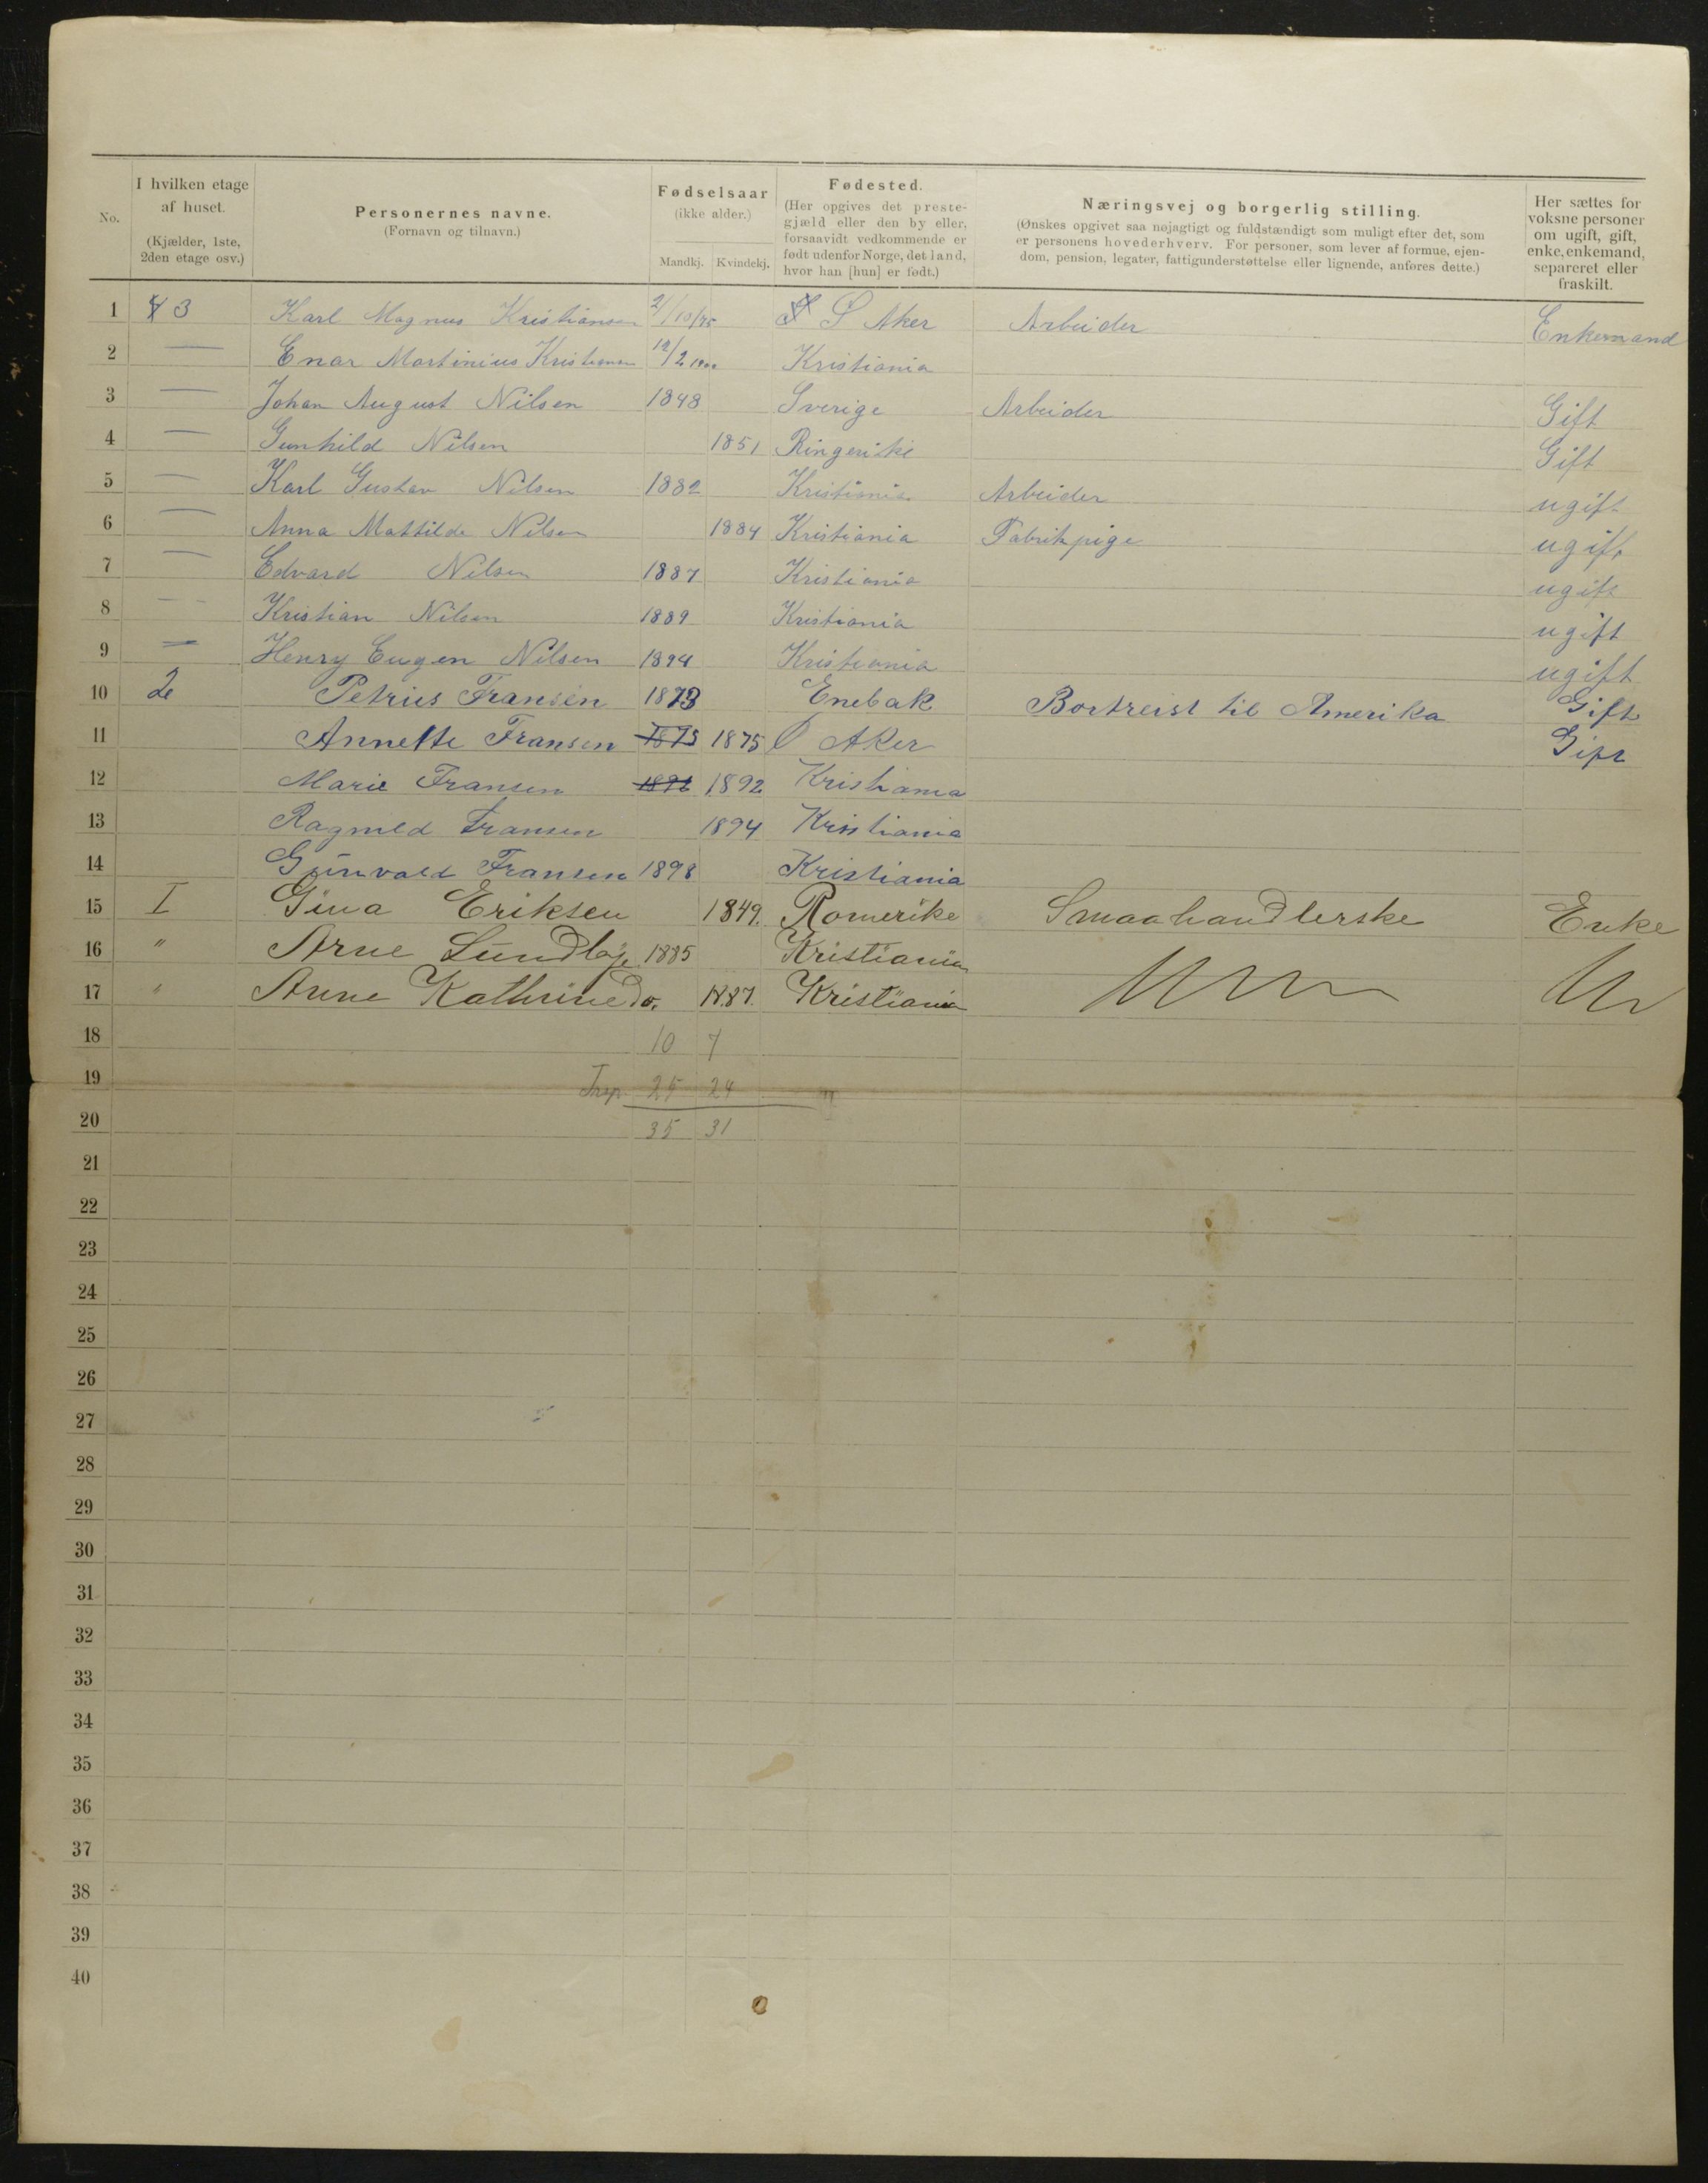 No.
I hvilken etage af huset.
(Kjælder, 1ste, 2den etage osv.)
Personernes navne.
(Fornavn og tilnavn.)
Fødselsaar
(ikke alder.)
Mandkj. Kvindekj.
Fødested.
(Her opgives det prestegjæld eller den by eller, forsaavidt vedkommende er født udenfor Norge, det land, hvor han [hun] er født.)
Næringsvej og borgerlig stilling.
(Ønskes opgivet saa nøjagtigt og fuldstændigt som muligt efter det, som er personens hovederhverv. For personer, som lever af formue, ejendom, pension, legater, fattigunderstøttelse eller lignende, anføres dette.)
Her sættes for voksne personer om ugift, gift, enke, enkemand, separeret eller fraskilt.
1 3 Karl Magnus Kristiansen 2/10/75 S Aker Arbeider Enkemand
2 — Enar Martinius Kristiansen 12/2 1900 Kristiania
3 — Johan August Nilsen 1848 Sverige Arbeider Gift
4 — Gunhild Nilsen 1851 Ringerike Gift
5 — Karl Gustav Nilsen 1882 Kristiania Arbeider ugift
6 — Anna Mathilde Nilsen 1884 Kristiania Fabrikpige ugift
7 — Edvard Nilsen 1887 Kristiania ugift
8 — Kristian Nilsen 1889 Kristiania ugift
9 — Henry Eugen Nilsen 1894 Kristiania ugift
10 2 Petrius Fransen 1873 Enebak Bortreist til Amerika Gift
11 Annette Fransen 1875 1875 Ø Aker Gift
12 Marie Fransen 1892 1892 Kristiania
13 Ragnild Fransen 1894 Kristiania
14 Gunvald Fransen 1898 Kristiania
15 I Gina Eriksen 1849. Romerike Smaahandlerske Enke
16 " Arne Lundbye 1885 Kristiania
17 " Anne Kathrine Do. 1887. Kristiania
18 10 7
19 Trsp. 25 24
20 35 31
21
22
23
24
25
26
27
28
29
30
31
32
33
34
35
36
37
38
39
40